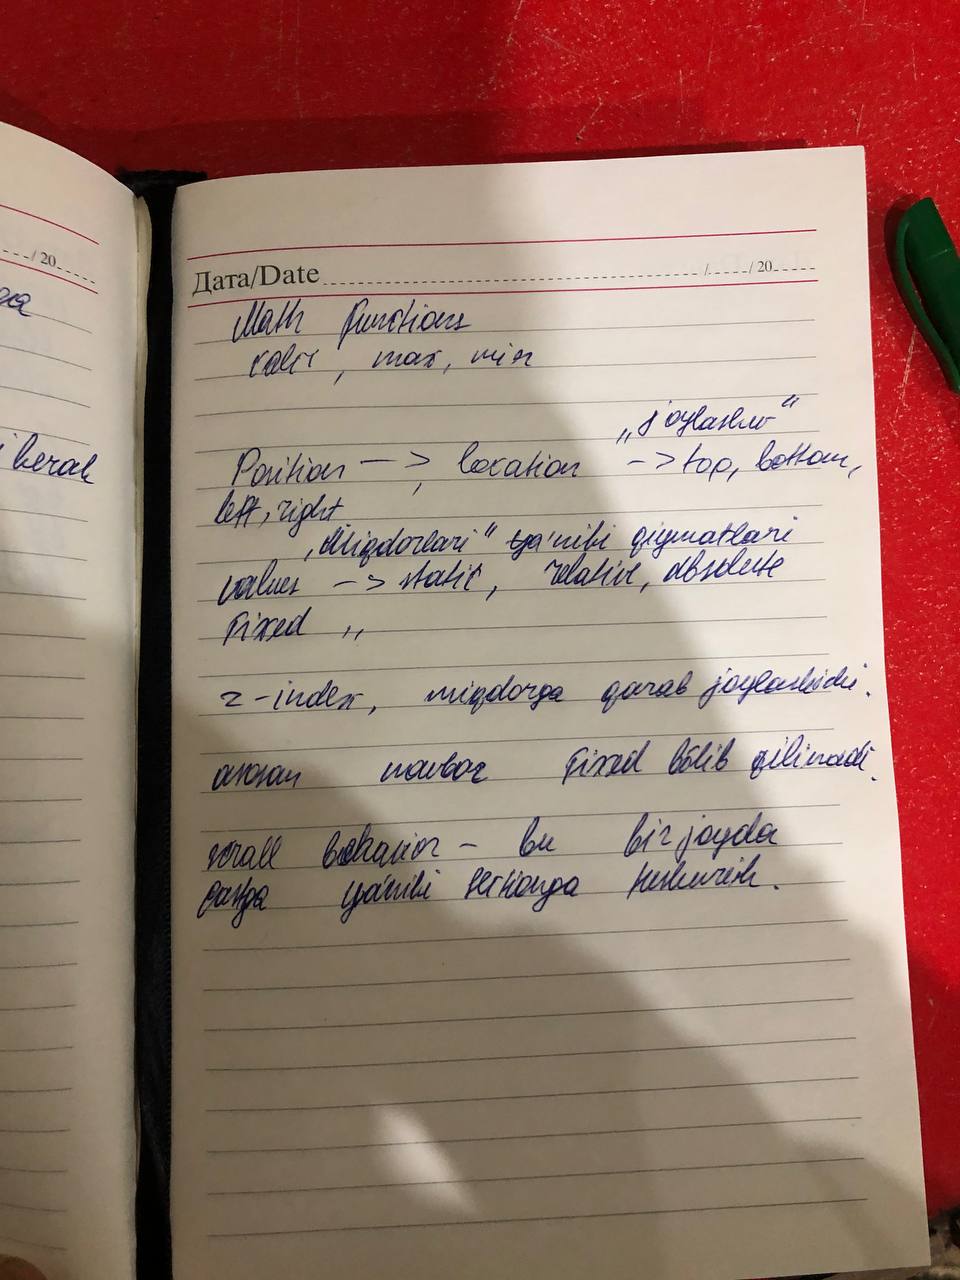 / 20
ga
iberak
Дата/Date / / 20
Math functions
calc, max, min
„joylashuv"
Position —>, location —> top, bottom,
left, right
„Miqdorlari" ya'niki qiymatlari
values —> static, relative, absolute
Fixed ,,
z-index, miqdorga qarab joylashidi.
asosan navbar fixed bõlib qilinadi.
scroll behavior – bu bir joyda
ya'niki sectionga tushurish.